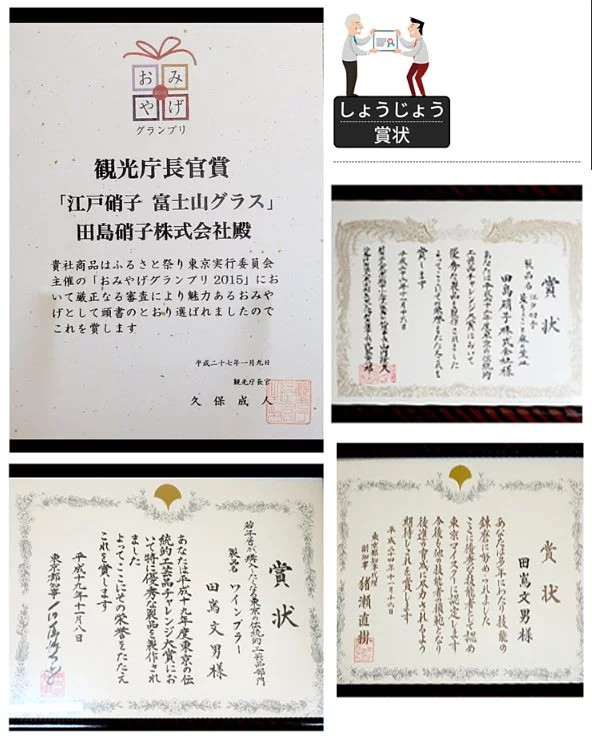 おみ
やげ
グランプリ
観光庁長官賞
「江戸硝子 富士山グラス」
田島硝子株式会社殿
貴社商品はふるさと祭り東京実行委員会
主催の「おみやげグランプリ2015」にお
いて厳正なる審査により魅力あるおみや
げとして頭書のとおり選ばれましたので
これを賞します
平成二十七年一月九日
観光庁長官
久保成人
しょうじょう
賞状
賞状
製品名
田島硝子株式会社様
優秀な製品を製作されました
賞します
賞状
若年層が購入したくなる東京の伝統的工芸品部門
製品名 ワインブラー
田嶌文男様
あなたは平成十九年度東京の伝
統的工芸品チャレンジ大賞にお
いて特に優秀な製品を製作され
ました
よってここにその栄誉をたたえ
これを賞します
平成十九年十一月八日
東京都知事
賞状
田嶌文男様
あなたは多年にわたり技能の
錬磨に努められました
ここに優秀な技能者として認め
東京マイスターに認定します
今後とも他の技能者の模範となり
後進の育成に尽力されるよう
期待しこれを賞します
平成二十四年十一月十六日
東京都知事職務代理者
副知事 猪瀬直樹